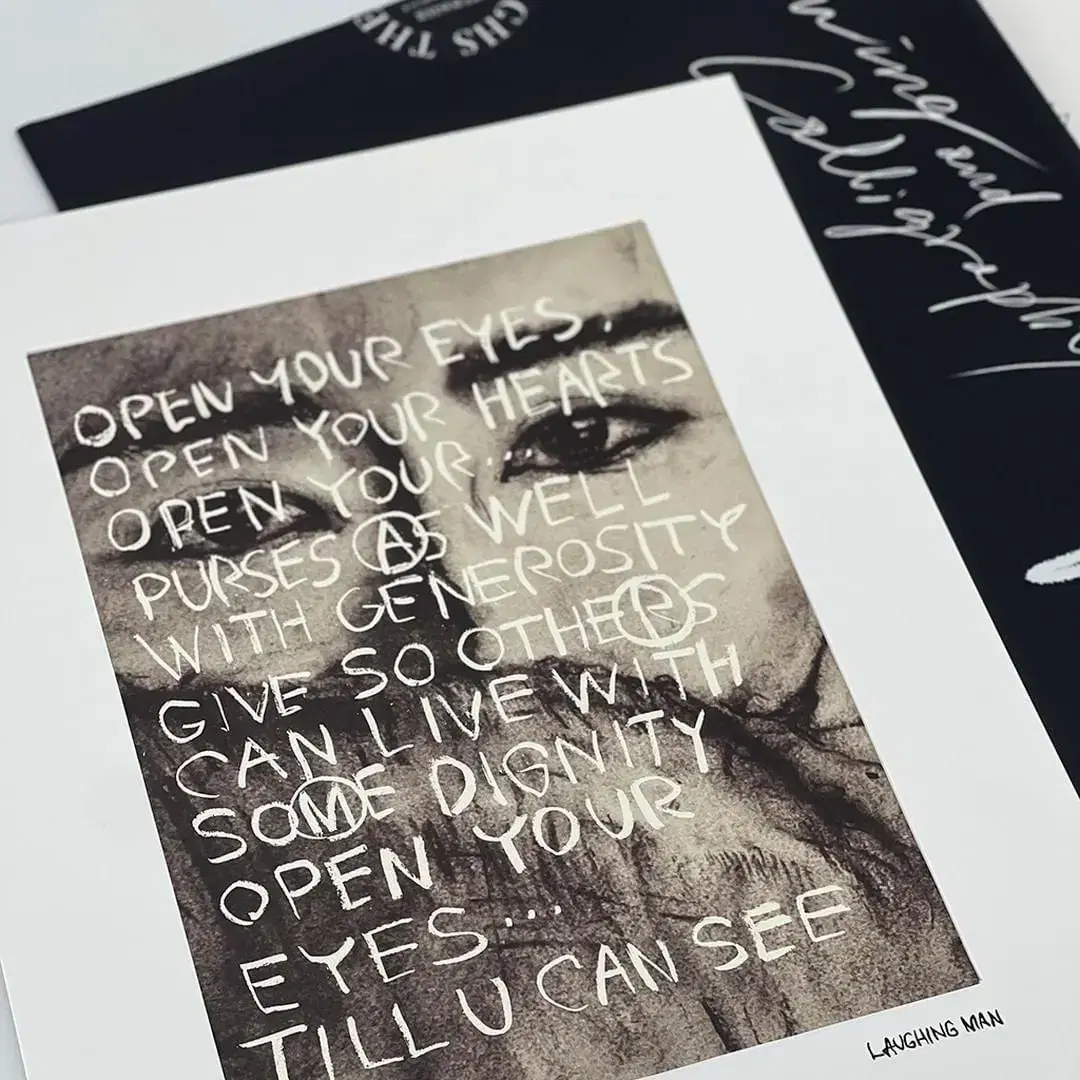 GHS THE
and
Calligraphy
OPEN YOUR EYES,
OPEN YOUR HEARTS
OPEN YOUR.
PURSES AS WELL
WITH GENEROSITY
GIVE SO OTHERS
CAN LIVE WITH
SOME DIGNITY
OPEN YOUR
EYES...
TILL U CAN SEE
LAUGHING MAN